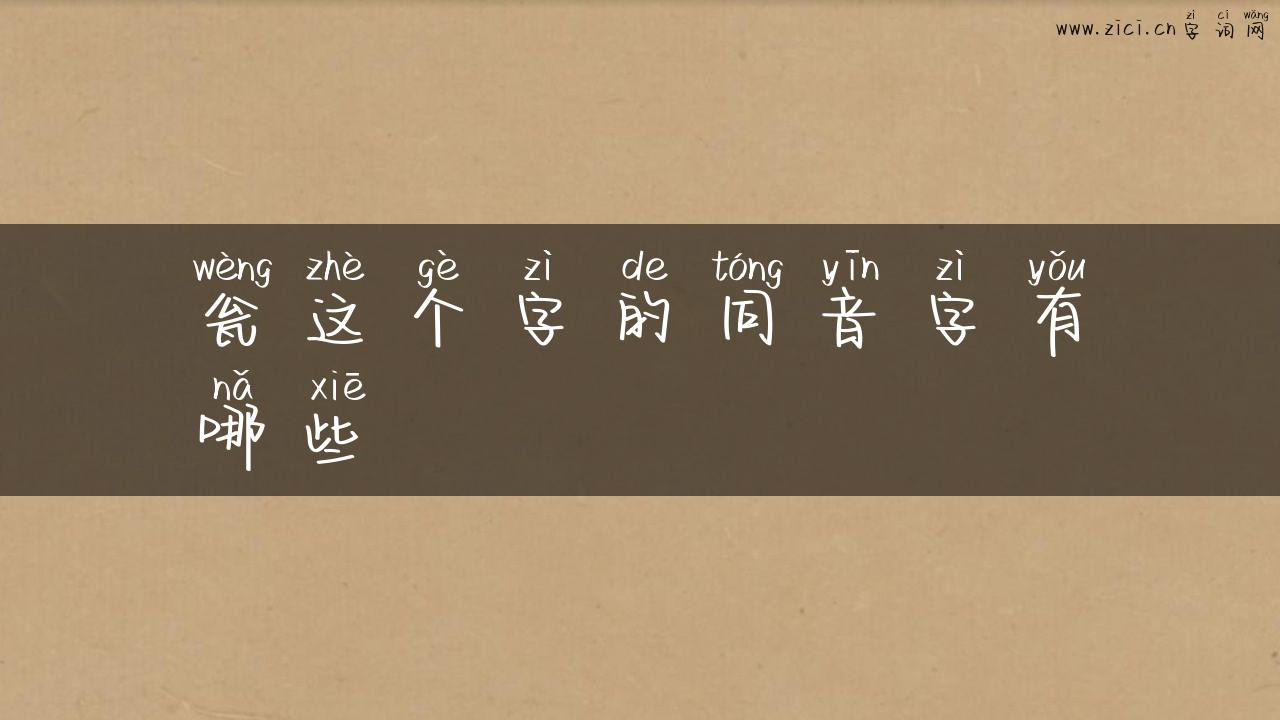 zì cí wǎng
www.zici.cn 字词网
wèng zhè gè zì de tóng yīn zì yǒu
瓮这个字的同音字有
nǎ xiē
哪些